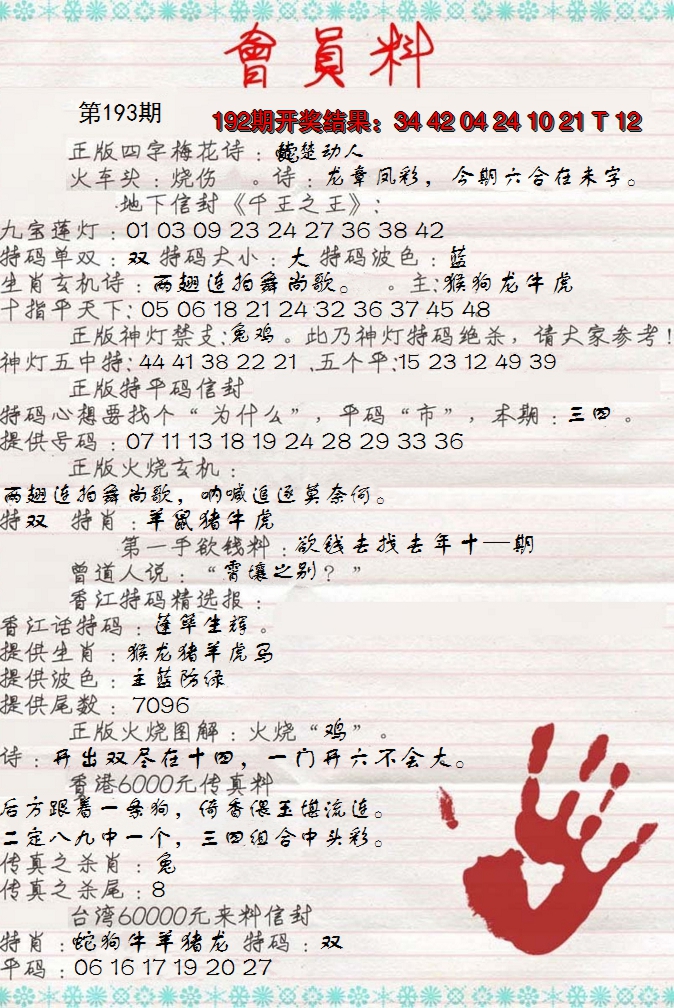 會員料
第193期
192期开奖结果：34 42 04 24 10 21 T 12
正版四字梅花诗：楚楚动人
火车头：烧伤 。诗：龙章凤彩，今期六合在未字。
地下信封《千王之王》：
九宝莲灯：01 03 09 23 24 27 36 38 42
特码单双：双 特码大小：大 特码波色：蓝
生肖玄机诗：两翅连拍舞尚歌。 。主：猴狗龙牛虎
十指平天下：05 06 18 21 24 32 36 37 45 48
正版神灯禁支：兔鸡。此乃神灯特码绝杀，请大家参考！
神灯五中特：44 41 38 22 21 .五个平：15 23 12 49 39
正版特平码信封
特码心想要找个“为什么”，平码“市”，本期：三四。
提供号码：07 11 13 18 19 24 28 29 33 36
正版火烧玄机：
两翅连拍舞尚歌，呐喊追逐莫奈何。
特双 特肖：羊鼠猪牛虎
第一手欲钱料：欲钱去找去年十一期
曾道人说：“霄壤之别？”
香江特码精选报：
香江话特码：蓬筚生辉。
提供生肖：猴龙猪羊虎马
提供波色：主蓝防绿
提供尾数：7096
正版火烧图解：火烧“鸡”。
诗：开出双尽在十四，一门开六不会大。
香港6000元传真料
后方跟着一条狗，倚香偎玉堪流连。
二定八九中一个，三四组合中头彩。
传真之杀肖：兔
传真之杀尾：8
台湾60000元来料信封
特肖：蛇狗牛羊猪龙 特码：双
平码：06 16 17 19 20 27